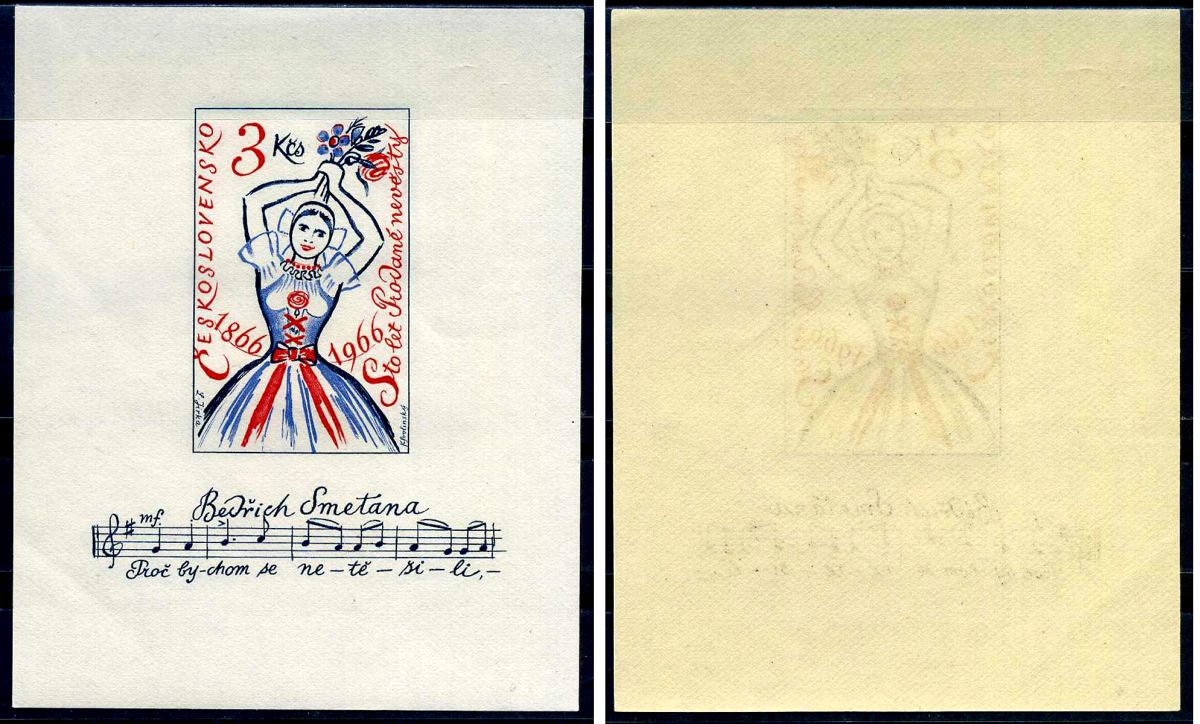 ČESKOSLOVENSKO
3 Kčs
Sto let Prodané nevěsty
1866
1966
L. Jirka
Bedřich Smetana
mf.
Proč by-chom se ne-tě-ši-li,-